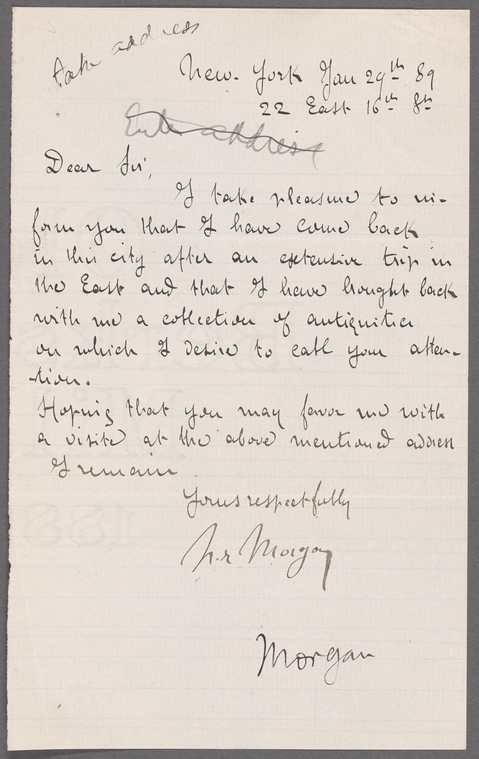 take address
New-York Jan 29th 89
22 East 16th St
Enter address
Dear Sir,
I take pleasure to in-
form you that I have come back
in this city after an extensive trip in
the East and that I have bought back
with me a collection of antiquities
on which I desire to call your atten-
tion.
Hoping that you may favor me with
a visite at the above mentioned address
I remain
Yours respectfully
Morgan
Morgan